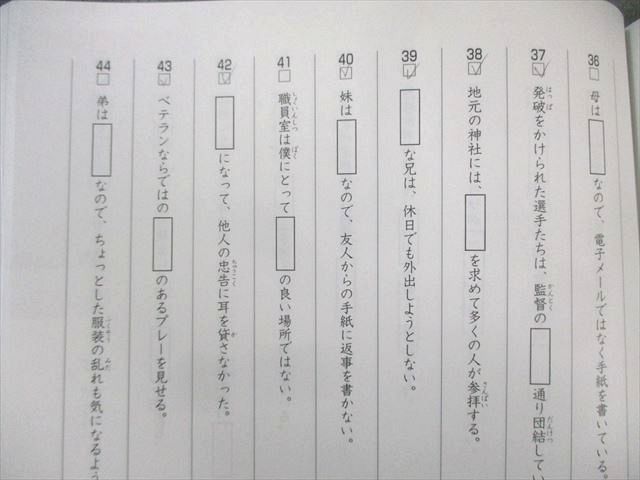 36 母は なので、電子メールではなく手紙を書いている。
37 発破をかけられた選手たちは、監督の 通り団結してい
38 地元の神社には、 を求めて多くの人が参拝する。
39 な兄は、休日でも外出しようとしない。
40 妹は なので、友人からの手紙に返事を書かない。
41 職員室は僕にとって の良い場所ではない。
42 になって、他人の忠告に耳を貸さなかった。
43 ベテランならではの のあるプレーを見せる。
44 弟は なので、ちょっとした服装の乱れも気になるよう